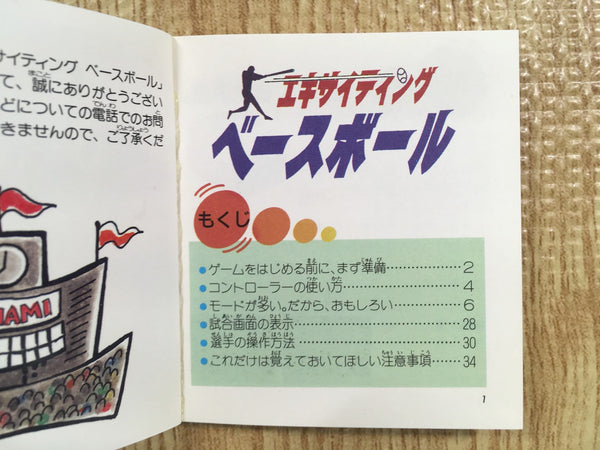 サイティング ベースボール」
て、誠にありがとうござい
どについての電話でのお問
きませんので、ご了承くだ
NAMI
エキサイティング
ベースボール
もくじ
●ゲームをはじめる前に、まず準備……………2
●コントローラーの使い方……………4
●モードが多い。だから、おもしろい……………6
●試合画面の表示……………28
●選手の操作方法……………30
●これだけは覚えておいてほしい注意事項……34
1